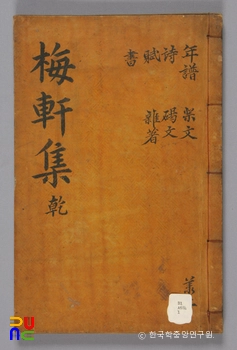 年譜 祭文
詩 碣文
賦 雜著
書
梅軒集 乾
© 한국학중앙연구원